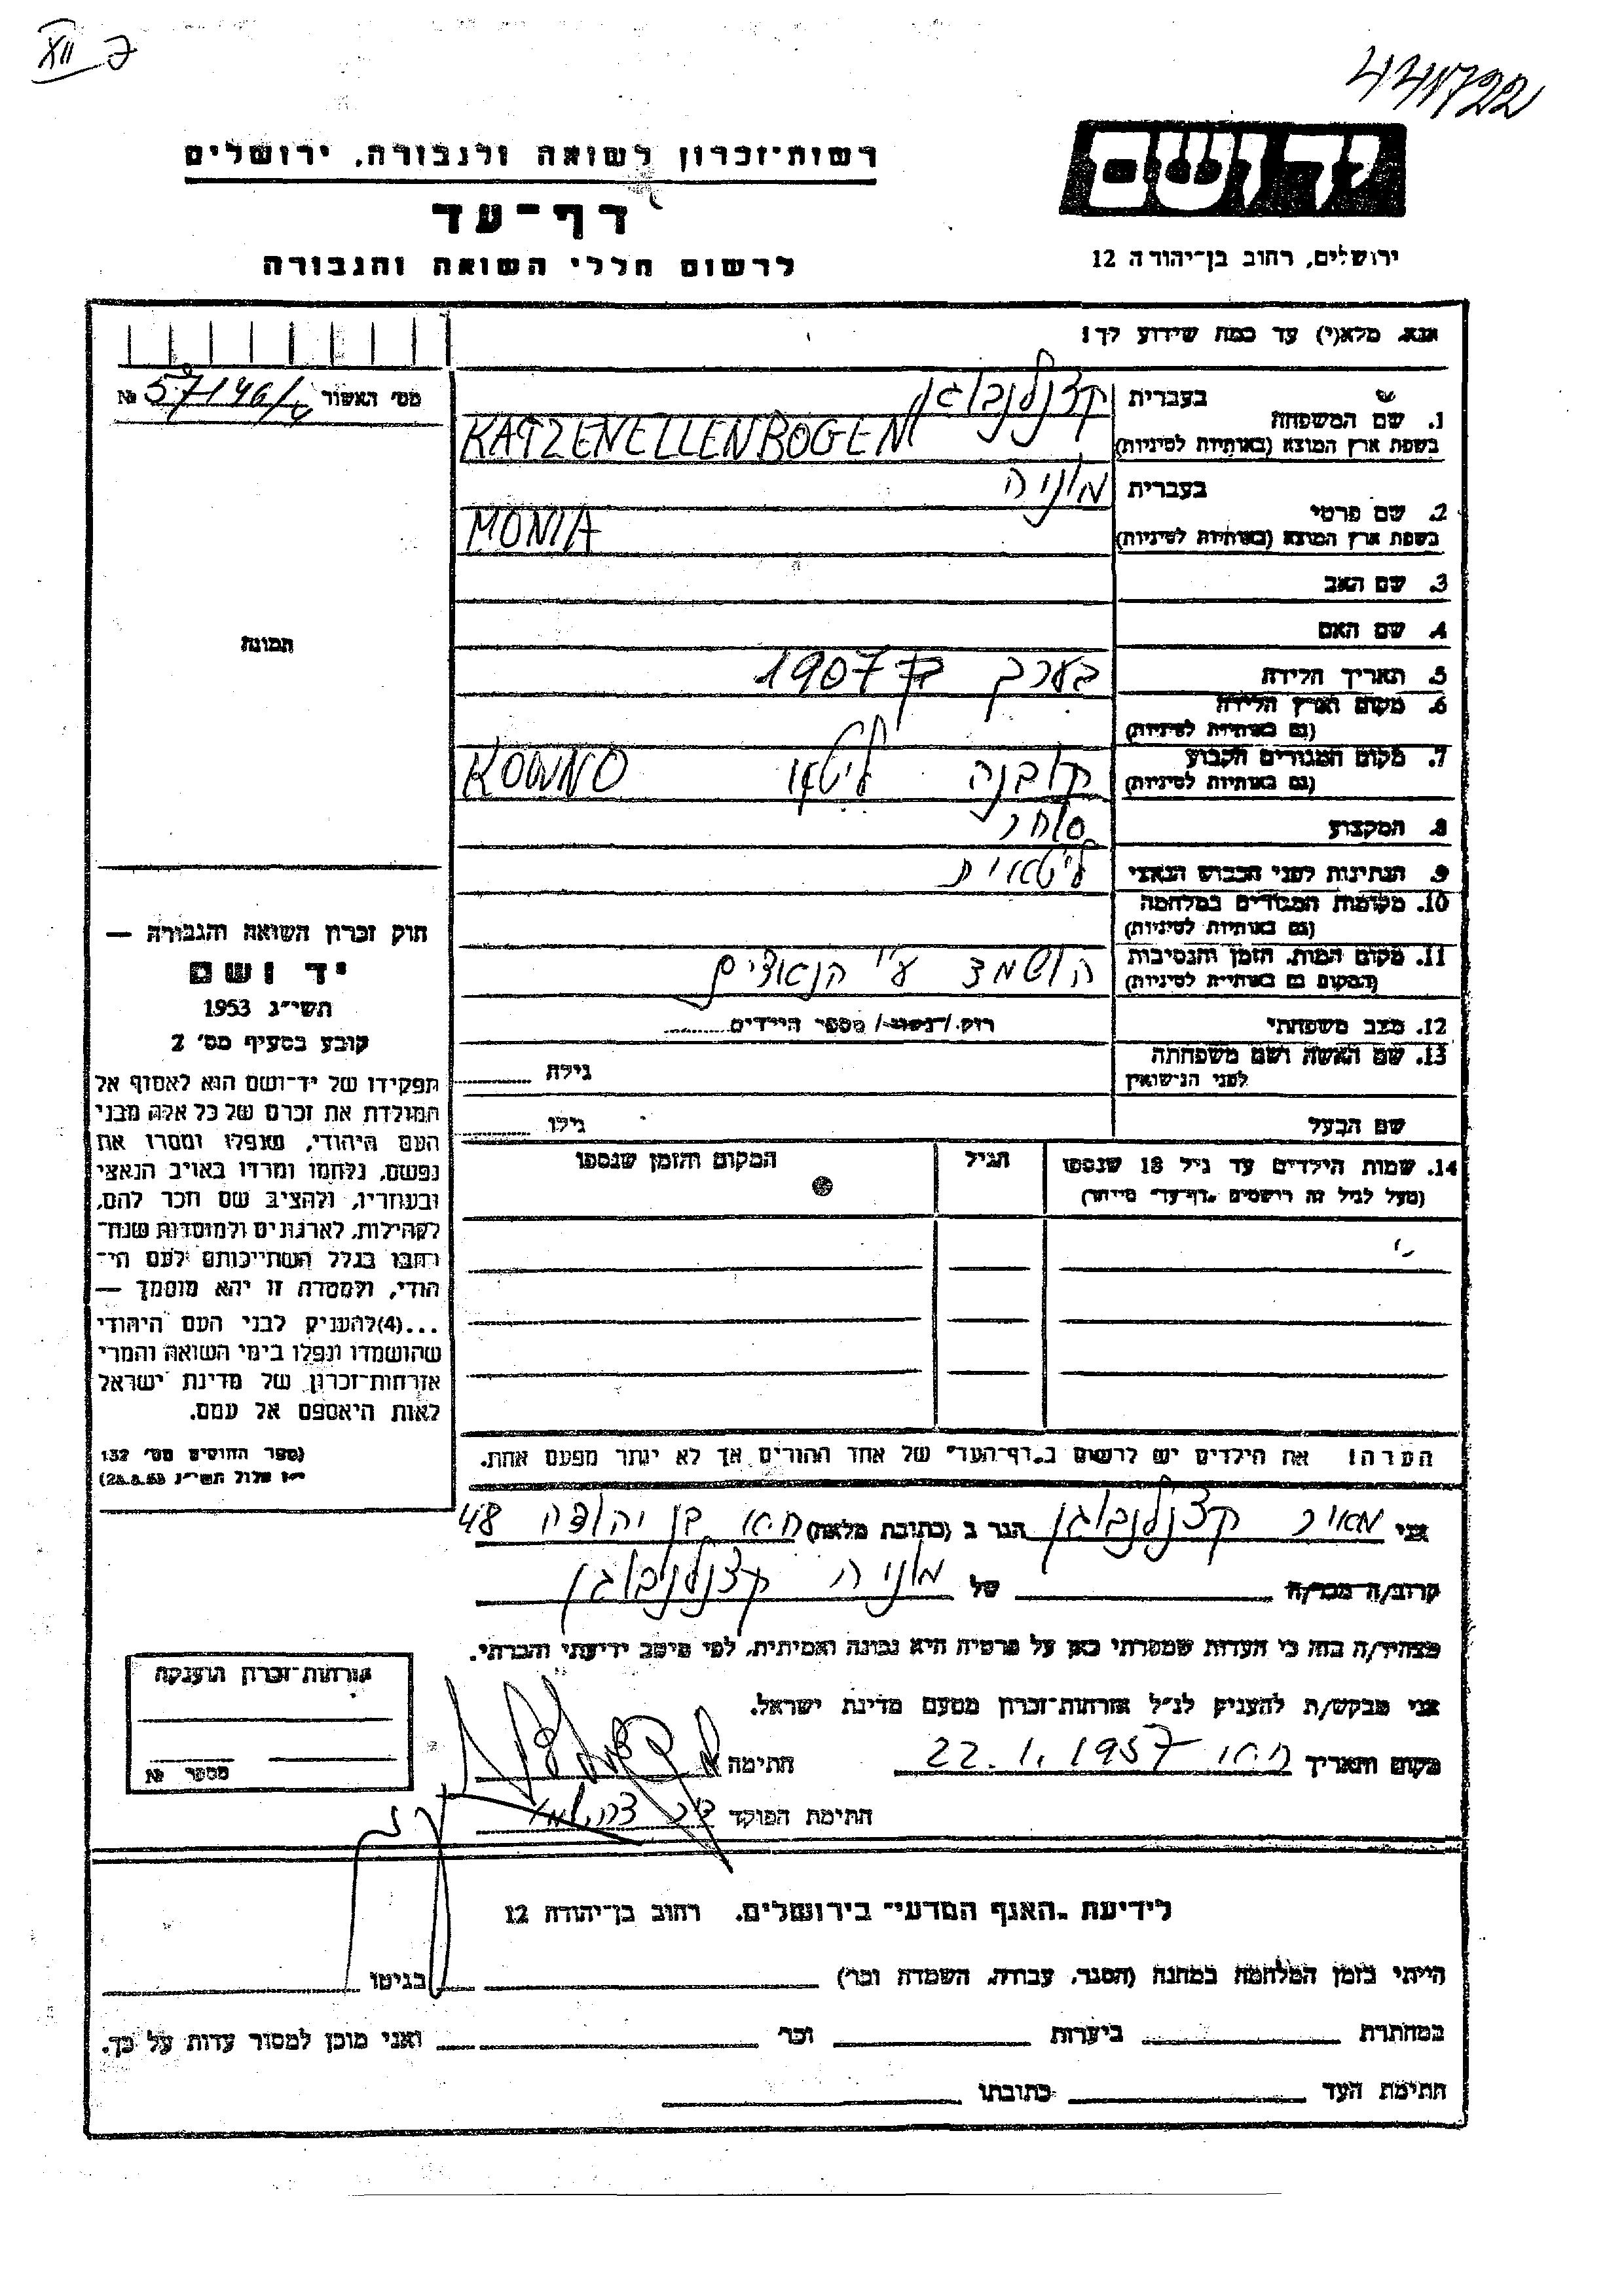 XII 7
441722
יד ושם
ירושלים, רחוב בן־יהודה 12
רשות־זכרון לשואה ולגבורה, ירושלים
דף־עד
לרשום חללי השואה והגבורה
אנא, מלא(י) עד כמה שידוע לך!
מס׳ האשור № 57146/4
1. שם המשפחה
בעברית קצנלנבוגן
בשפת ארץ המוצא (באותיות לטיניות) KATZENELLENBOGEN
2. שם פרטי
בעברית מוניה
בשפת ארץ המוצא (באותיות לטיניות) MONIA
3. שם האב
4. שם האם
5. תאריך הלידה בערך 1907
6. מקום וארץ הלידה
(גם באותיות לטיניות)
7. מקום המגורים הקבוע
(גם באותיות לטיניות) קובנה ליטא KOWNO
8. המקצוע סוחר
9. הנתינות לפני הכבוש הנאצי ליטאית
10. מקומות המגורים במלחמה
(גם באותיות לטיניות)
11. מקום המות, הזמן והנסיבות
(המקום גם באותיות לטיניות) הושמד ע״י הנאצים
12. מצב משפחתי רוק/נשוי/ מספר הילדים
13. שם האשה ושם משפחתה
לפני הנישואין גילה
שם הבעל גילו
14. שמות הילדים עד גיל 18 שנספו
(מעל לגיל זה רושמים „דף־עד״ מיוחד)
הגיל
המקום והזמן שנספו
תמונה
חוק זכרון השואה והגבורה —
יד ושם
תשי״ג 1953
קובע בסעיף מס׳ 2
תפקידו של יד־ושם הוא לאסוף אל
המולדת את זכרם של כל אלה מבני
העם היהודי, שנפלו ומסרו את
נפשם, נלחמו ומרדו באויב הנאצי
ובעוזריו, ולהציב שם וזכר להם,
לקהילות, לארגונים ולמוסדות שנח־
רבו בגלל השתייכותם לעם הי־
הודי, ולמטרה זו יהא מוסמך —
...(4)להעניק לבני העם היהודי
שהושמדו ונפלו בימי השואה והמרי
אזרחות־זכרון של מדינת ישראל
לאות היאספם אל עמם.
(ספר החוקים מס׳ 132
י״ז אלול תשי״ג 28.8.53)
הערה! את הילדים יש לרשום ב„דף־העד״ של אחד ההורים אך לא יותר מפעם אחת.
אני מאיר קצנלנבוגן הגר ב (כתובת מלאה) ת״א בן יהודה 48
קרוב/ה מכר/ה של מוניה קצנלנבוגן
מצהיר/ה בזה כי העדות שמסרתי כאן על פרטיה היא נכונה ואמיתית, לפי מיטב ידיעתי והכרתי.
אני מבקש/ת להעניק לנ״ל אזרחות־זכרון מטעם מדינת ישראל.
מקום ותאריך ת״א 22.1.1957 חתימה
חתימת הפוקד
אזרחות־זכרון הוענקה
מספר №
לידיעת „האגף המדעי״ בירושלים, רחוב בן־יהודה 12
הייתי בזמן המלחמה במחנה (הסגר, עבודה, השמדה וכו׳) בגיטו
במחתרת ביערות וכו׳ ואני מוכן למסור עדות על כך.
חתימת העד כתובתו